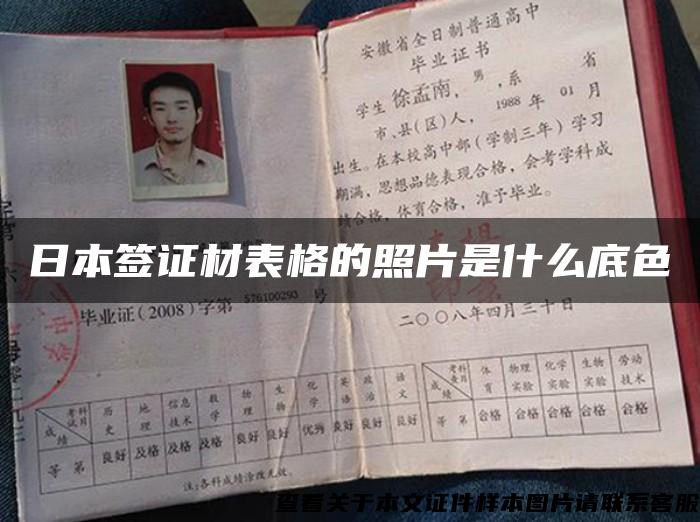 安徽省全日制普通高中
毕业证书
学生徐孟南，男，系 省
市、县(区)人，1988年01月
出生。在本校高中部(学制三年)学习
期满，思想品德表现合格，会考学科成
绩合格，体育合格，准予毕业。
日本签证材表格的照片是什么底色
毕业证(2008)字第576100293号
二〇〇八年四月三十日
考试科目 历史 地理 信息技术 数学 物理 生物 化学 英语 政治 语文
成绩
等第 良好 及格 及格 及格 良好 良好 优秀 良好 良好 良好
注:各科成绩涂改无效。
考查科目 体育 物理实验 化学实验 生物实验 劳动技术
成绩
等第 合格 合格 合格 合格 合格
查看关于本文证件样本图片请联系客服